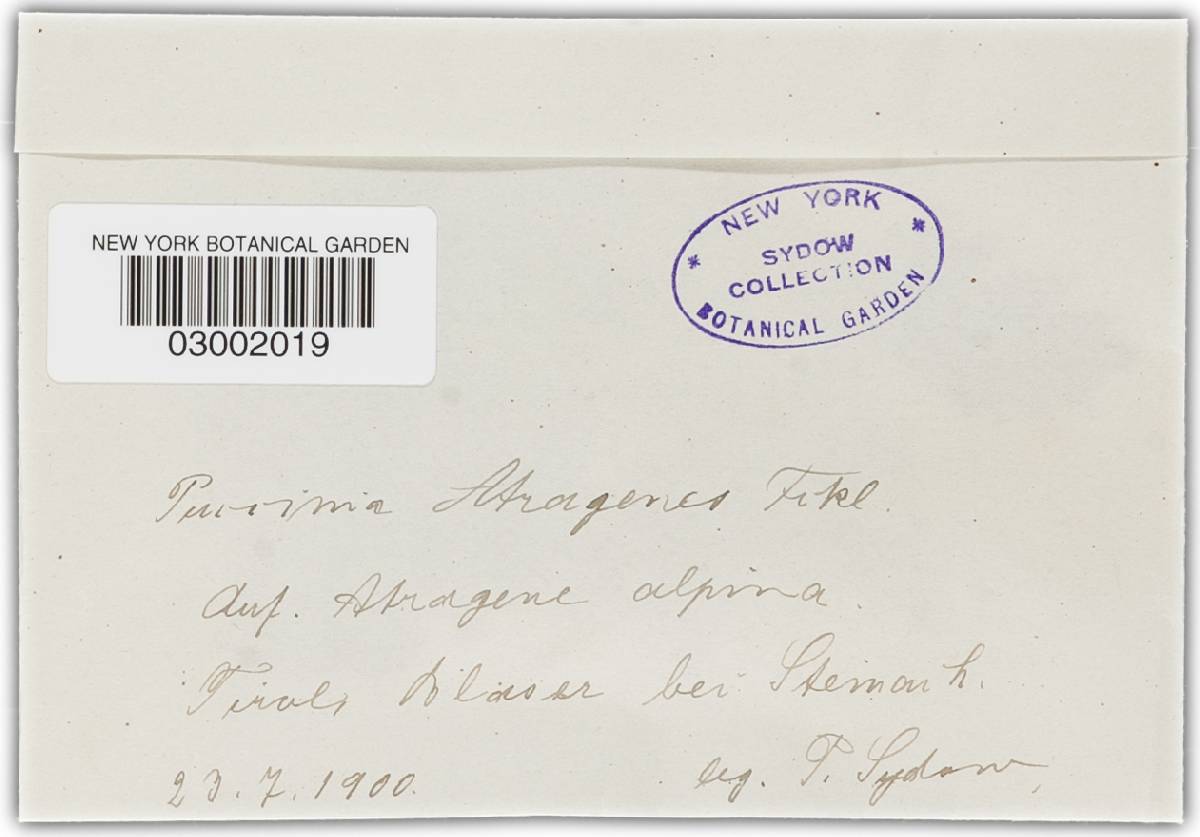 NEW YORK BOTANICAL GARDEN
03002019
NEW YORK
SYDOW
COLLECTION
BOTANICAL GARDEN
Puccinia Atragenes Fckl.
Auf. Atragene alpina.
Tirol, Blaser bei Steinach.
23.7.1900.
leg. P. Sydow,